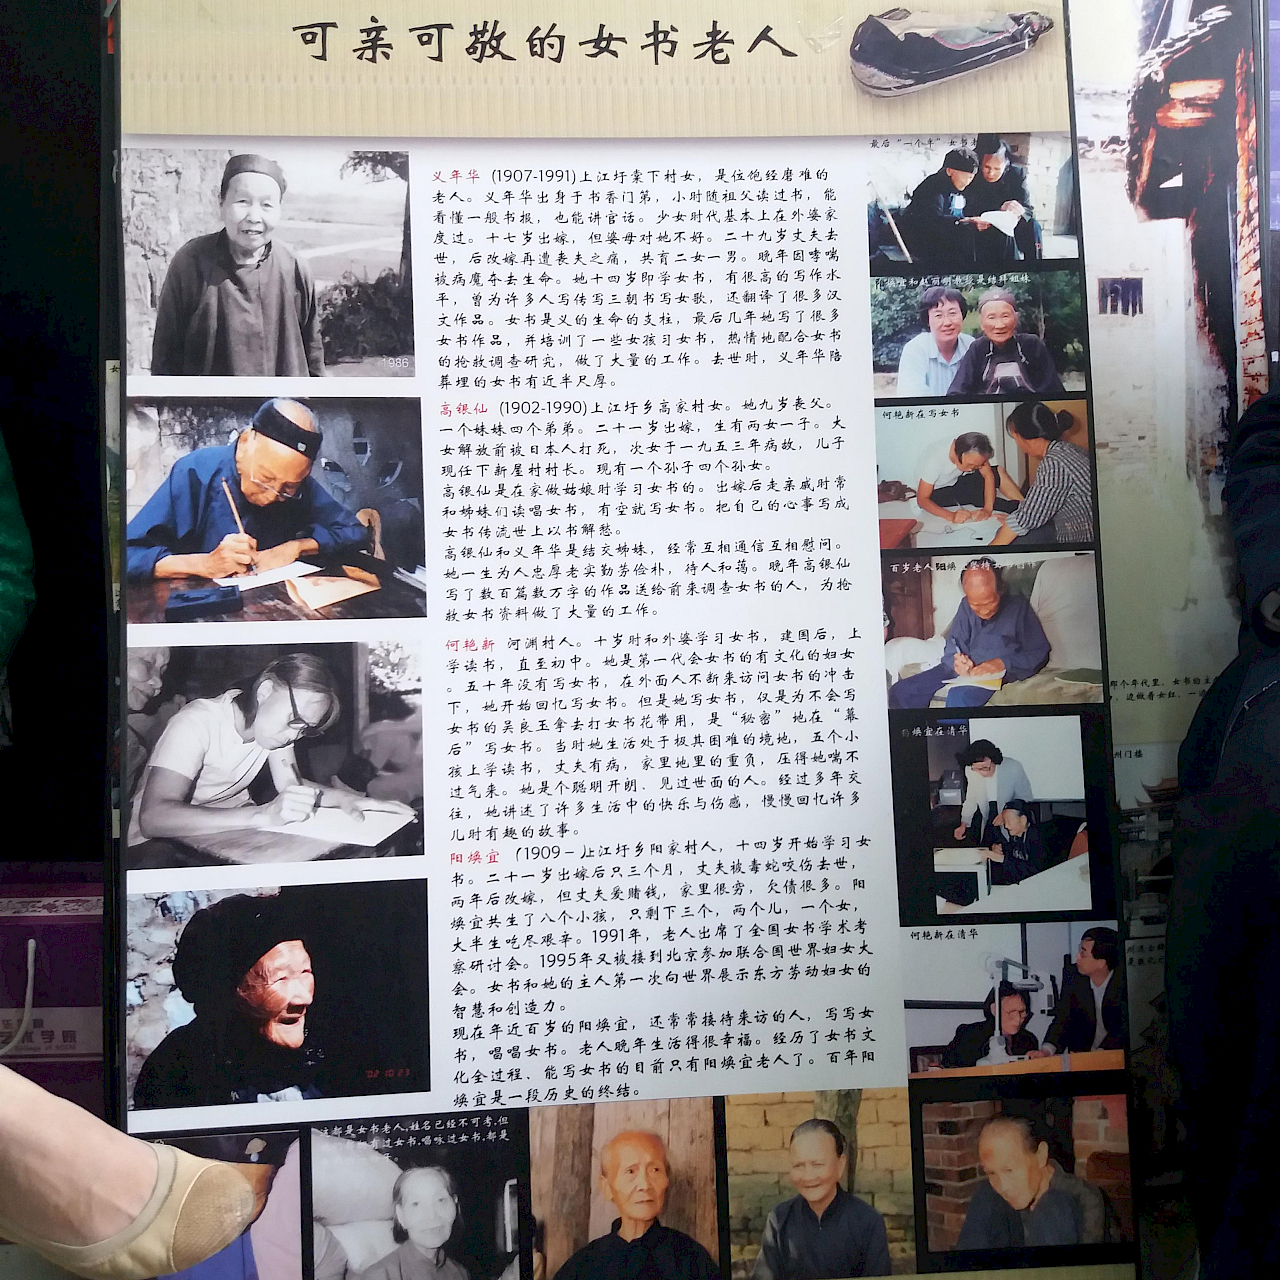 可亲可敬的女书老人
义年华 (1907-1991)上江圩棠下村女，是位饱经磨难的
老人。义年华出身于书香门第，小时随祖父读过书，能
看懂一般书报，也能讲官话。少女时代基本上在外婆家
度过。十七岁出嫁，但婆母对她不好。二十九岁丈夫去
世，后改嫁再遭丧夫之痛，共育二女一男。晚年因哮喘
被病魔夺去生命。她十四岁即学女书，有很高的写作水
平，曾为许多人写传写三朝书写女歌，还翻译了很多汉
文作品。女书是义的生命的支柱，最后几年她写了很多
女书作品，并培训了一些女孩习女书，热情地配合女书
的抢救调查研究，做了大量的工作。去世时，义年华陪
葬埋的女书有近半尺厚。
高银仙 (1902-1990)上江圩乡高家村女。她九岁丧父。
一个妹妹四个弟弟。二十一岁出嫁，生有两女一子。大
女解放前被日本人打死，次女于一九五三年病故，儿子
现任下新屋村村长。现有一个孙子四个孙女。
高银仙是在家做姑娘时学习女书的。出嫁后走亲戚时常
和姊妹们读唱女书，有空就写女书。把自己的心事写成
女书传流世上以书解愁。
高银仙和义年华是结交姊妹，经常互相通信互相慰问。
她一生为人忠厚老实勤劳俭朴，待人和蔼。晚年高银仙
写了数百篇数万字的作品送给前来调查女书的人，为抢
救女书资料做了大量的工作。
何艳新 河渊村人。十岁时和外婆学习女书，建国后，上
学读书，直至初中。她是第一代会女书的有文化的妇女
。五十年没有写女书，在外面人不断来访问女书的冲击
下，她开始回忆写女书。但是她写女书，仅是为不会写
女书的吴良玉拿去打女书花带用，是“秘密”地在“幕
后”写女书。当时她生活处于极其困难的境地，五个小
孩上学读书，丈夫有病，家里地里的重负，压得她喘不
过气来。她是个聪明开朗、见过世面的人。经过多年交
往，她讲述了许多生活中的快乐与伤感，慢慢回忆许多
儿时有趣的故事。
阳焕宜 (1909－)上江圩乡阳家村人，十四岁开始学习女
书。二十一岁出嫁后只三个月，丈夫被毒蛇咬伤去世，
两年后改嫁，但丈夫爱赌钱，家里很穷，欠债很多。阳
焕宜共生了八个小孩，只剩下三个，两个儿，一个女，
大半生吃尽艰辛。1991年，老人出席了全国女书学术考
察研讨会。1995年又被接到北京参加联合国世界妇女大
会。女书和她的主人第一次向世界展示东方劳动妇女的
智慧和创造力。
现在年近百岁的阳焕宜，还常常接待来访的人，写写女
书，唱唱女书。老人晚年生活得很幸福。经历了女书文
化全过程、能写女书的目前只有阳焕宜老人了。百年阳
焕宜是一段历史的终结。
1986
'02 10 23
最后“一个半”女书老
阳焕宜和赵丽明教授是结拜姐妹
何艳新在写女书
百岁老人阳焕
焕宜在清华
何艳新在清华
这都是女书老人,姓名已经不可考,但
有过女书,唱咏过女书,都是
那个年代里，女书的主
，边做着女红，一边
州门楼